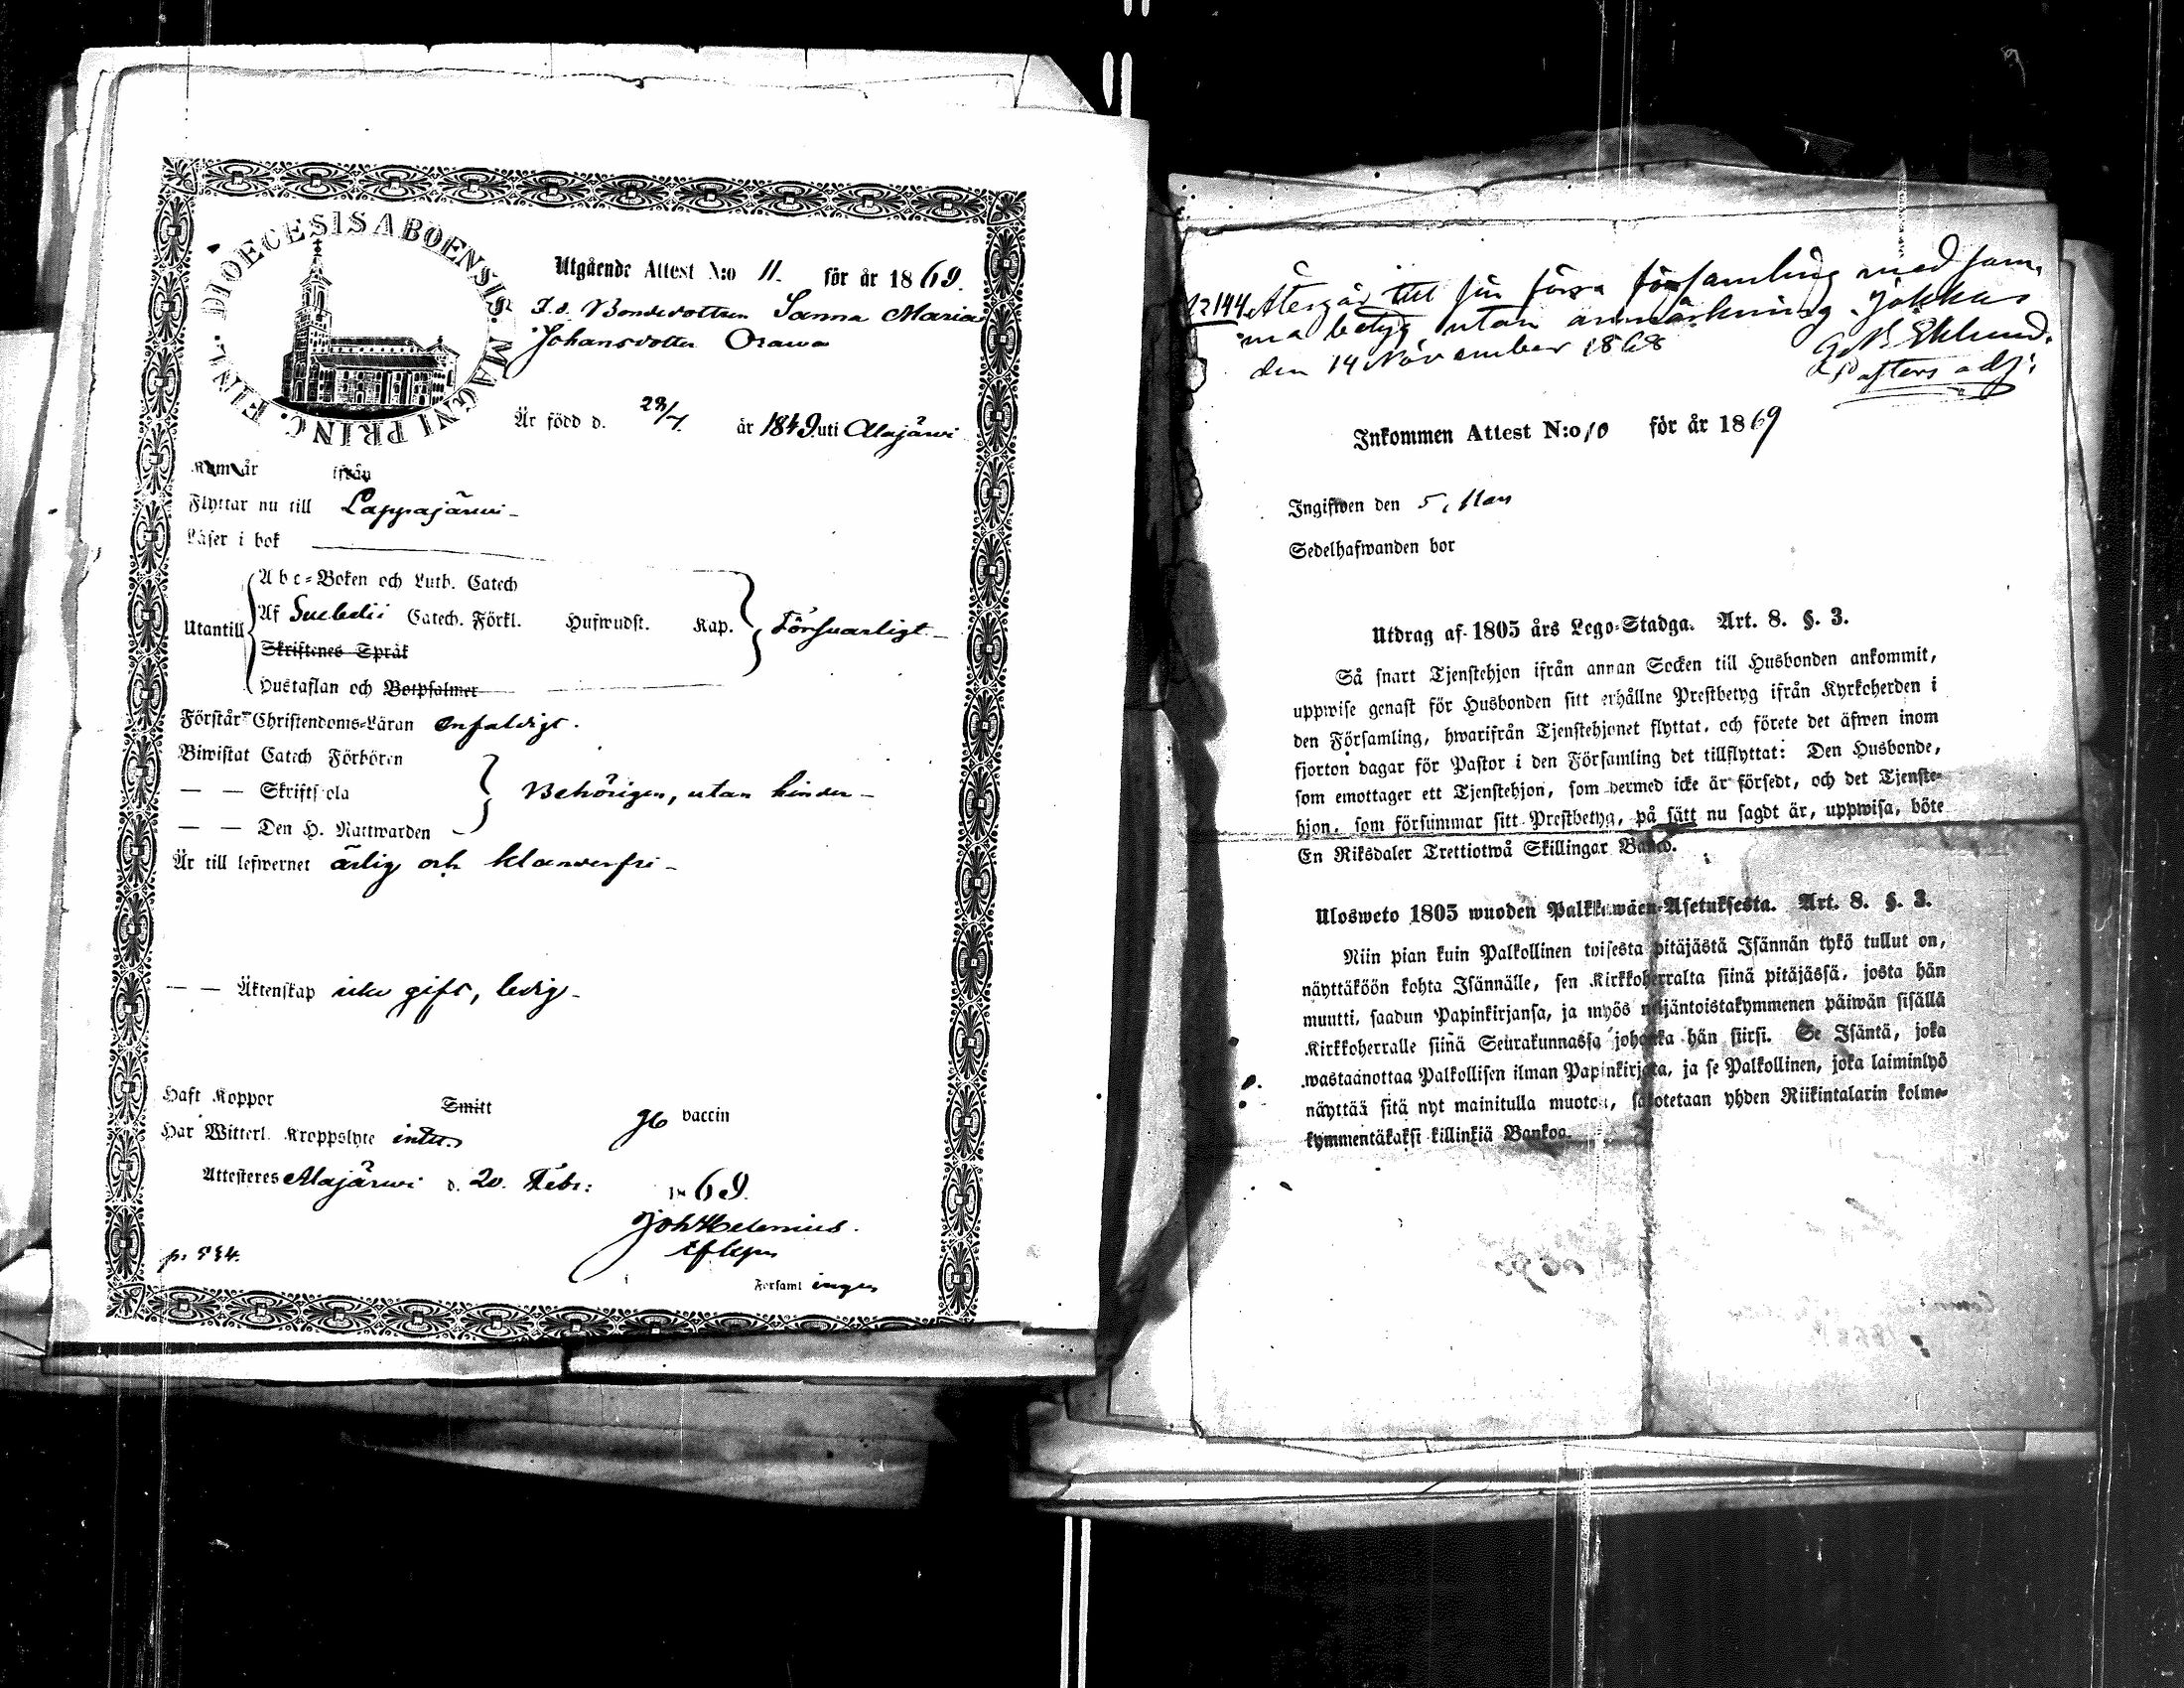 DIOECESIS ABOENSIS. MAGNI PRINC. FINL.
Utgående Attest N:o 11. för år 1869.
F. d. Bondedottren Sanna Maria
Johansdotter Orawa
Är född d. år 1849 uti Alajärwi
Kom år ifrån
Flyttar nu till Lappajärwi -
Läser i bok
Abc-Boken och Luth. Catech
Utantill Af Suebelii Catech. Förkl. Hufwudst. Kap. Försvarligt -
Skriftenes Språk
Hustaflan och Botpsalmer
Förstår Christendoms-Läran enfaldigt.
Biwistat Catech Förhören
— — Skriftskola Behörigen, utan hinder -
— — Den H. Nattwarden
Är till lefwernet ärlig och klanderfri -
— — Äktenskap icke gift, ledig -
Haft Koppor Smitt vaccin
Har Witterl. Kroppslyte intet
Attesteras Alajärwi d. 20. Febr: 1869.
Joh Helenius.
p. 534.
Församl ingen
N 144 Återgår till sin förra församling med sam-
ma betyg utan anmärkning. Jokkas
den 14 November 1868 Eklund.
Pastors adj:
Inkommen Attest N:o 10 för år 1869
Ingifwen den 5, Mars
Sedelhafwanden bor
Utdrag af 1805 års Lego-Stadga. Art. 8. §. 3.
Så snart Tjenstehjon ifrån annan Socken till Husbonden ankommit,
uppwise genast för Husbonden sitt erhållne Prestbetyg ifrån Kyrkoherden i
den Församling, hwarifrån Tjenstehjonet flyttat, och förete det äfwen inom
fjorton dagar för Pastor i den Församling det tillflyttat: Den Husbonde,
som emottager ett Tjenstehjon, som dermed icke är försedt, och det Tjenste-
hjon, som försummar sitt Prestbetyg, på sätt nu sagdt är, uppwisa, böte
En Riksdaler Trettiotwå Skillingar Banco.
Ulosweto 1805 wuoden Palkkawäen-Asetuksesta. Art. 8. §. 3.
Niin pian kuin Palkollinen toisesta pitäjästä Isännän tykö tullut on,
näyttäköön kohta Isännälle, sen Kirkkoherralta siinä pitäjässä, josta hän
muutti, saadun Papinkirjansa, ja myös neljäntoistakymmenen päiwän sisällä
Kirkkoherralle siinä Seurakunnassa johonka hän siirsi. Se Isäntä, joka
wastaanottaa Palkollisen ilman Papinkirjata, ja se Palkollinen, joka laiminlyö
näyttää sitä nyt mainitulla muotoa, sakotetaan yhden Riikintalarin kolme-
kymmentäkaksi killinkiä Bankoa.